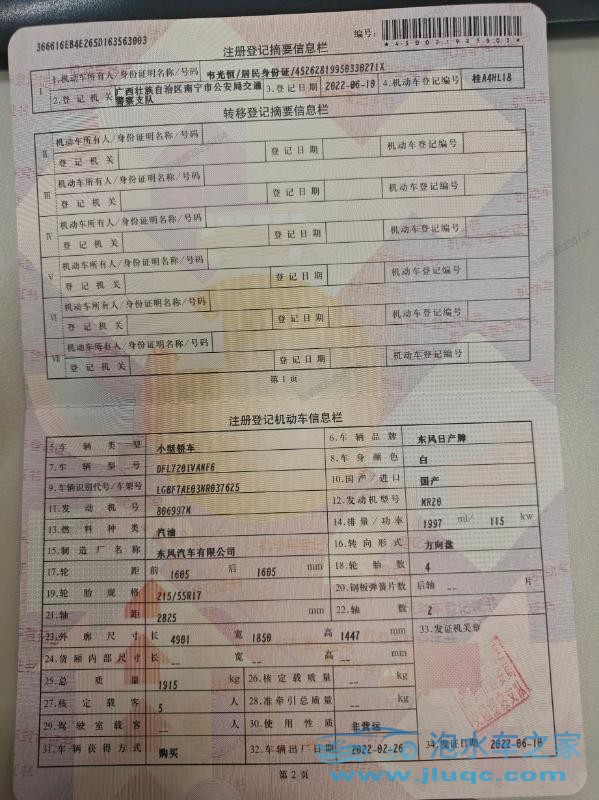 366616EB4E265D163563003
编号:
注册登记摘要信息栏
I
1.机动车所有人/身份证明名称/号码 韦光恒/居民身份证/45262819950330271X
2.登记机关 广西壮族自治区南宁市公安局交通警察支队 3.登记日期 2022-06-10 4.机动车登记编号 桂A4HL18
转移登记摘要信息栏
II 机动车所有人/身份证明名称/号码
登记机关 登记日期 机动车登记编号
III 机动车所有人/身份证明名称/号码
登记机关 登记日期 机动车登记编号
IV 机动车所有人/身份证明名称/号码
登记机关 登记日期 机动车登记编号
V 机动车所有人/身份证明名称/号码
登记机关 登记日期 机动车登记编号
VI 机动车所有人/身份证明名称/号码
登记机关 登记日期 机动车登记编号
VII 机动车所有人/身份证明名称/号码
登记机关 登记日期 机动车登记编号
第1页
注册登记机动车信息栏
5.车辆类型 小型轿车 6.车辆品牌 东风日产牌
7.车辆型号 DFL7201VANF6 8.车身颜色 白
9.车辆识别代号/车架号 LGBF7AE03NR037625 10.国产/进口 国产
11.发动机号 806997N 12.发动机型号 MR20
13.燃料种类 汽油 14.排量/功率 1997 ml/ 115 kw
15.制造厂名称 东风汽车有限公司 16.转向形式 方向盘
17.轮距 前 1605 后 1605 mm 18.轮胎数 4
19.轮胎规格 215/55R17 20.钢板弹簧片数 后轴 -- 片
21.轴距 2825 mm 22.轴数 2
23.外廓尺寸 长 4901 宽 1850 高 1447 mm 33.发证机关章
24.货厢内部尺寸 长 -- 宽 -- 高 -- mm
25.总质量 1915 kg 26.核定载质量 -- kg
27.核定载客 5 人 28.准牵引总质量 -- kg
29.驾驶室载客 -- 人 30.使用性质 非营运
31.车辆获得方式 购买 32.车辆出厂日期 2022-02-26 34.发证日期 2022-06-10
第2页
泡水车之家
www.jluqc.com